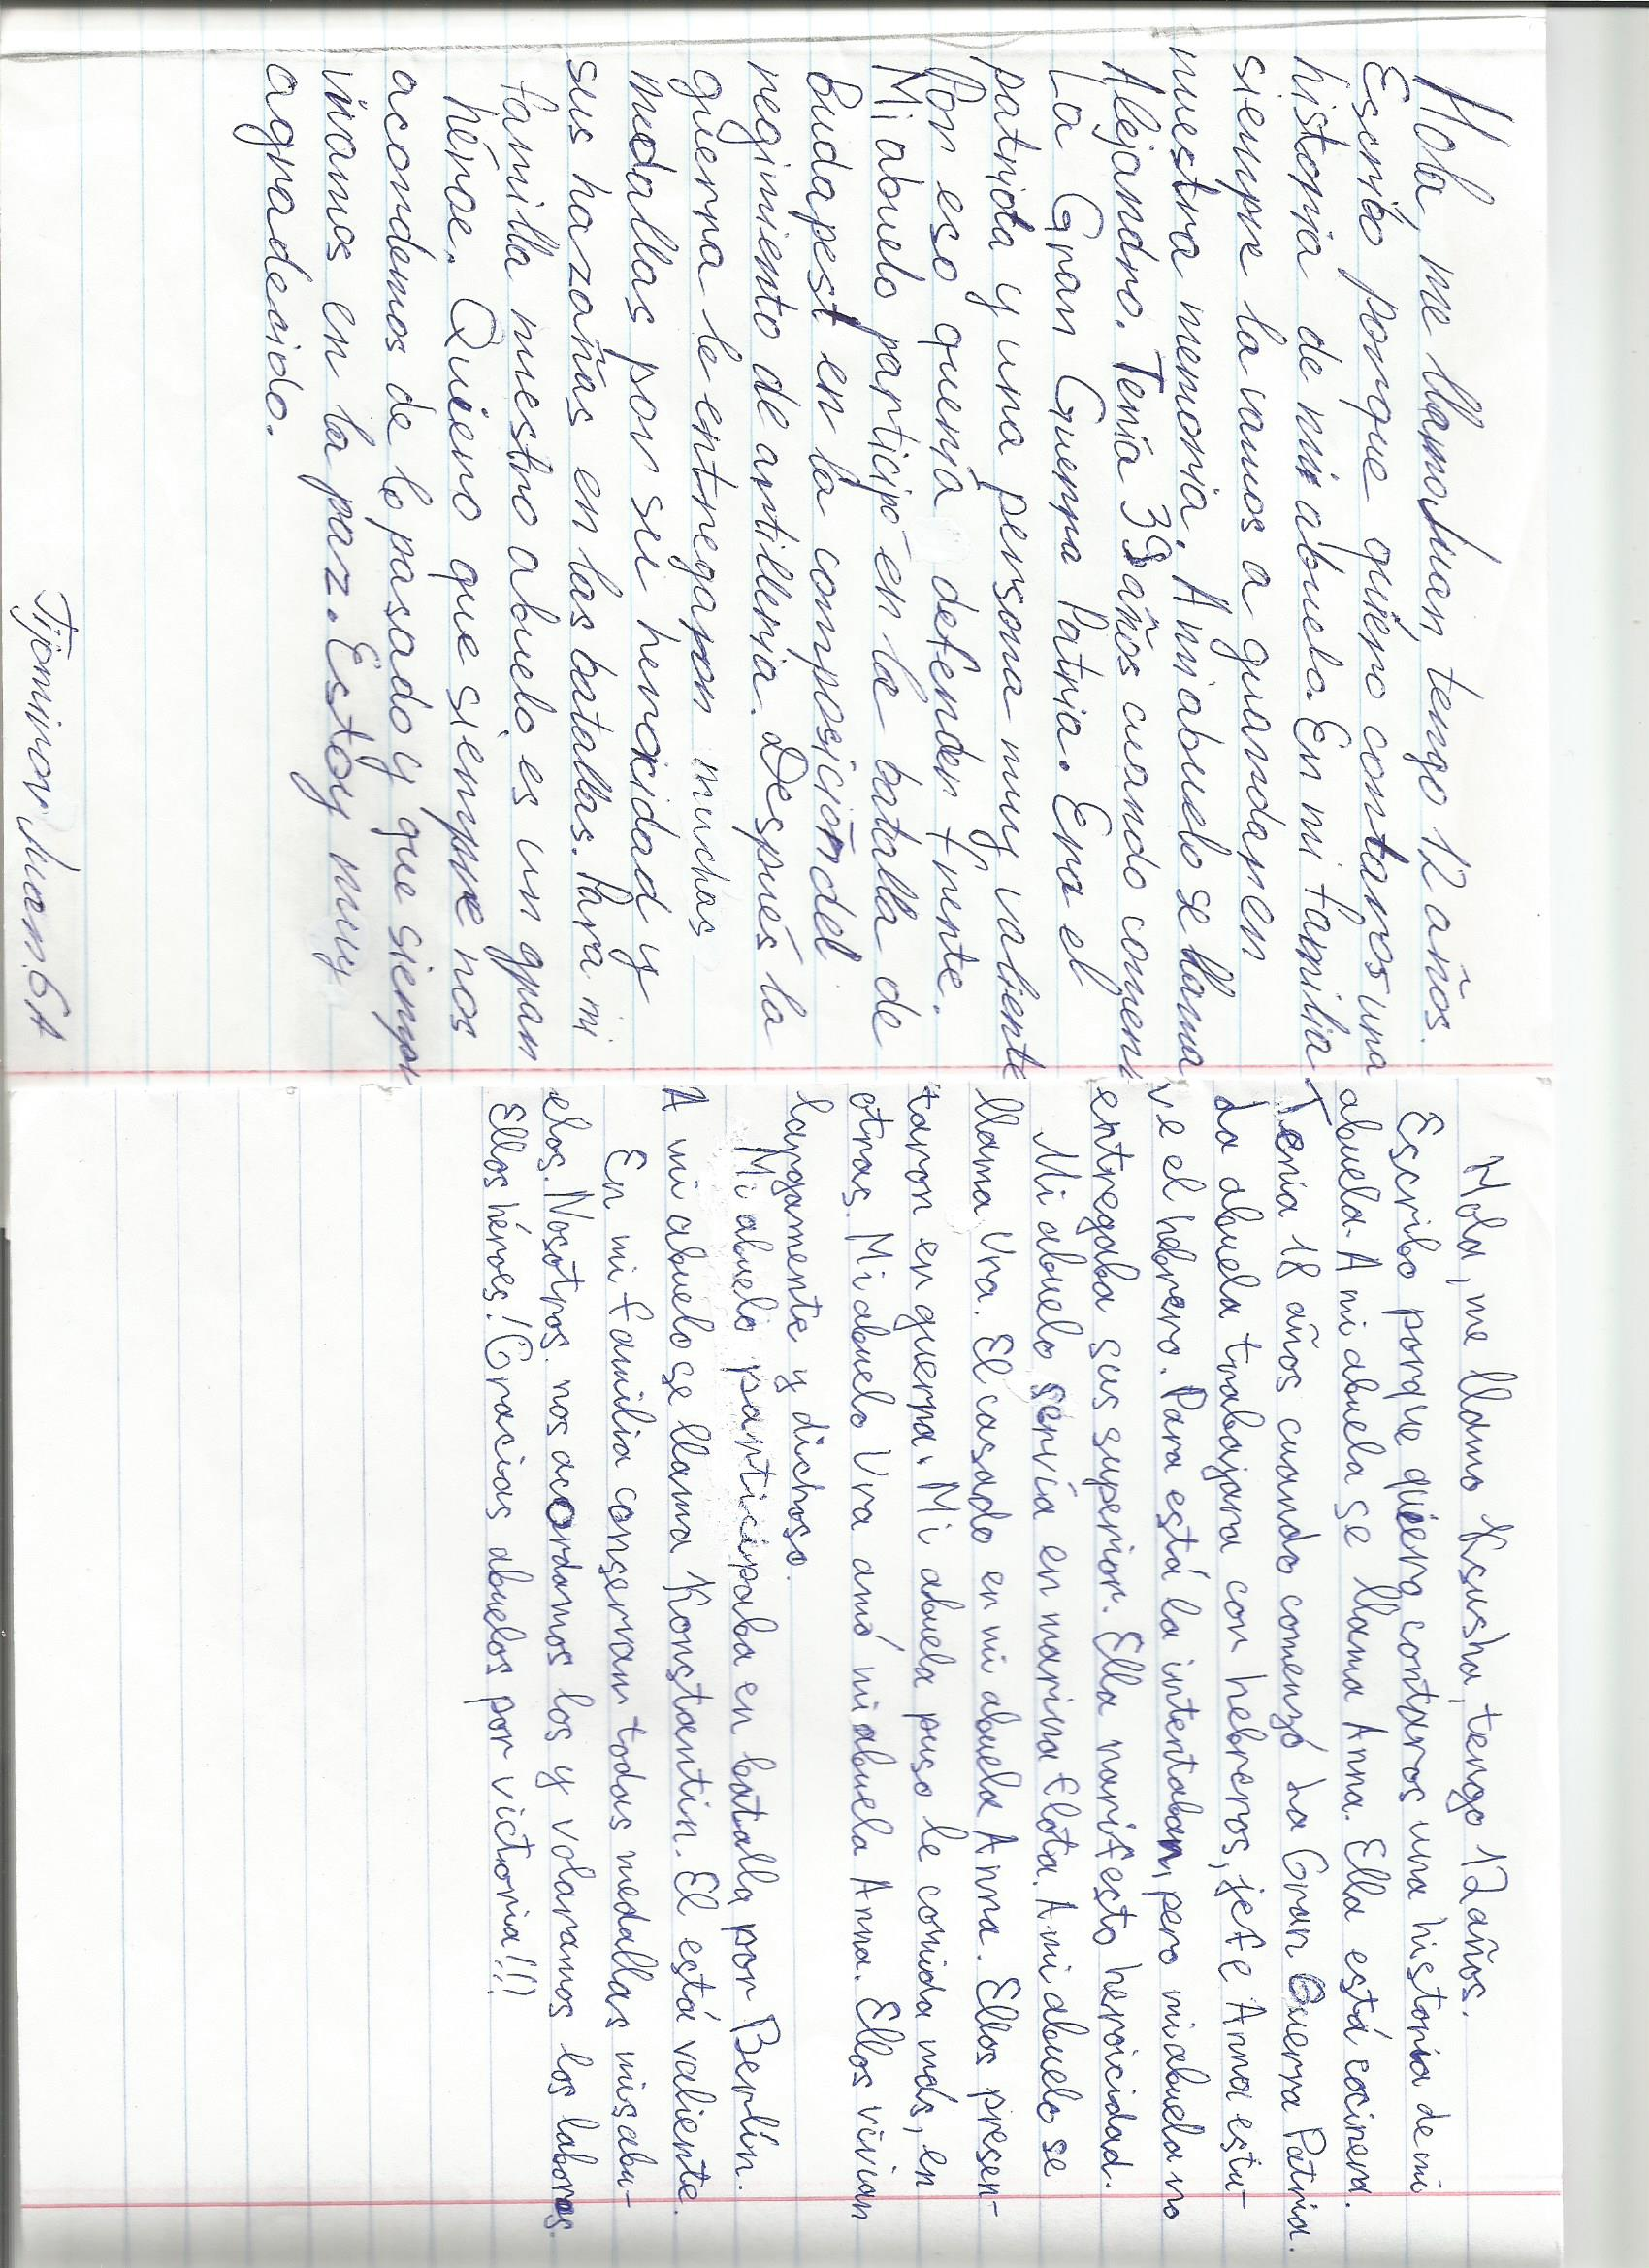 Hola, me llamo Juan, tengo 12 años.
Escribo porque quiero contaros una
historia de mi abuelo. En mi familia
siempre la vamos a guardar en
nuestra memoria. A mi abuelo se llama
Alejandro. Tenía 39 años cuando comen
La Gran Guerra Patria. Era el
patriota y una persona muy valiente
Por eso quería defender frente.
Mi abuelo participó en la batalla de
Budapest en la composición del
regimiento de artilleria. Después la
guerra le entregaron muchas
medallas por su heroicidad y
sus hazañas en las batallas. Para mi
familla nuestro abuelo es un gran
héroe. Quiero que siempre nos
acordemos de lo pasado y que siempr
vivamos en la paz. Estoy muy
agradecido.
Tijomirov Juan 6A
Hola, me llamo Ksusha, tengo 12 años.
Escribo porque quiero contaros una historia de mi
abuela. A mi abuela se llama Anna. Ella está cocinera.
Tenia 18 años cuando comenzó La Gran Guerra Patria.
La abuela trabajara con hebreros, jefe Anna estu-
ve el hebrero. Para está la intentaban, pero mi abuela no
entregaba sus superior. Ella manifesto heroicidad.
Mi abuelo servía en marina flota. A mi abuelo se
llama Vra. El casado en mi abuela Anna. Ellos presen-
taron en guerra. Mi abuela puso le comida más, en
otras. Mi abuelo Vra amó mi abuela Anna. Ellos vivian
largamente y dichoso.
Mi abuelo participaba en batalla por Berlín.
A mi abuelo se llama Konstantin. El está valiente.
En mi familia conservan todas medallas mis abu-
elos. Nosotros nos acordamos los y volaramos los labores.
Ellos héroes! Gracias abuelos por victoria!!!